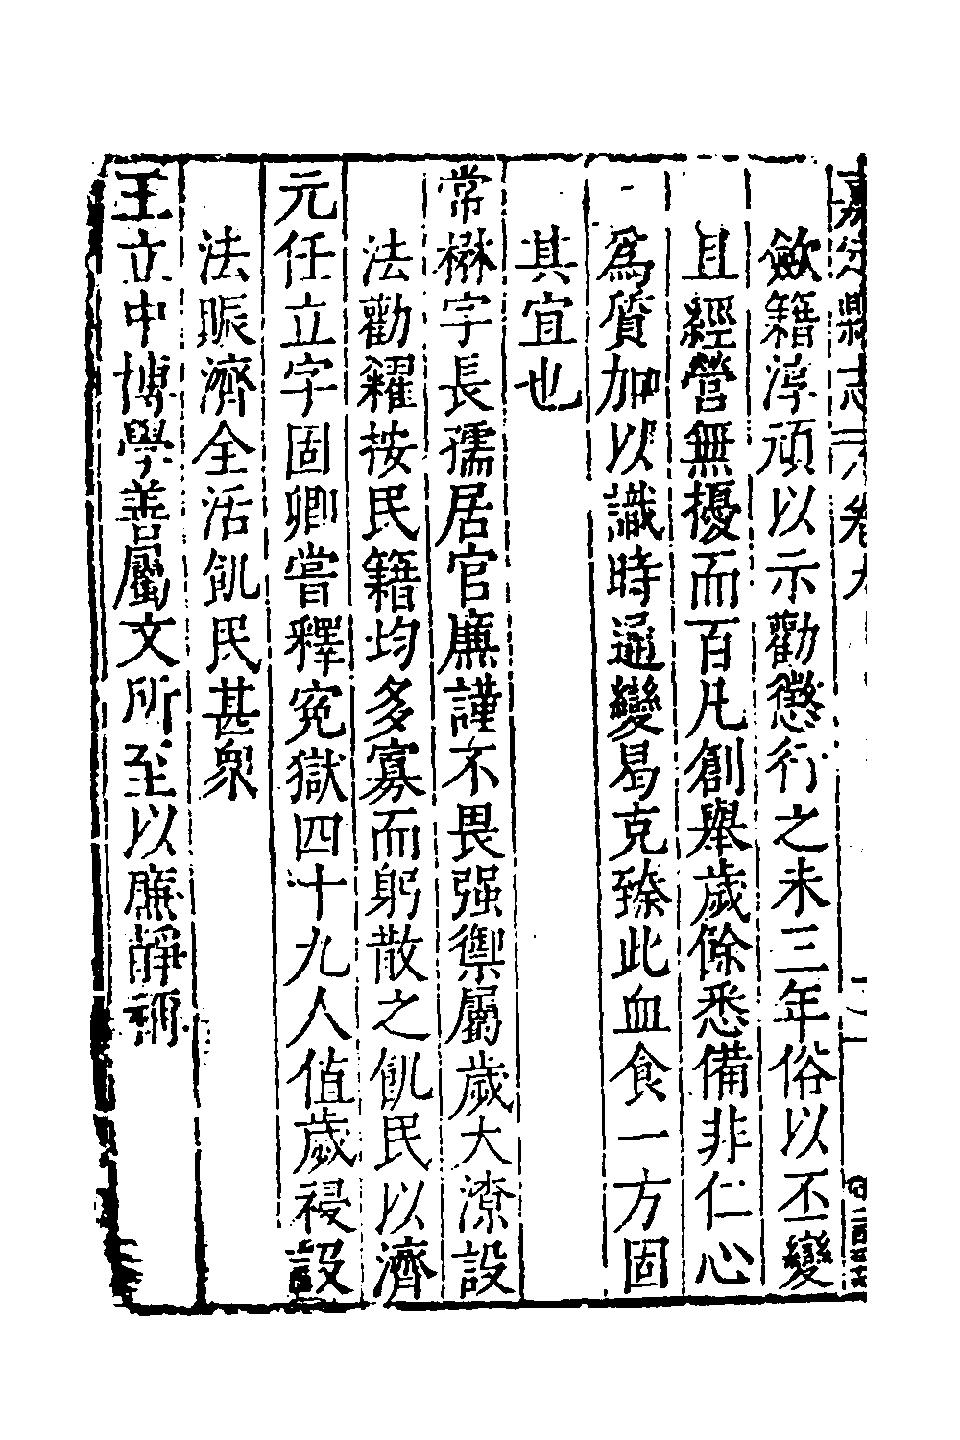 嘉定縣志 卷九
斂籍淳頑以示勸懲行之未三年俗以丕變
且經營無擾而百凡創舉歲餘悉備非仁心
爲質加以識時通變曷克臻此血食一方固
其宜也
常楙字長孺居官廉謹不畏强禦屬歲大潦設
法勸糴按民籍均多寡而躬散之飢民以濟
元任立字固卿嘗釋寃獄四十九人值歲祲設
法賑濟全活飢民甚衆
王立中博學善屬文所至以廉靜稱